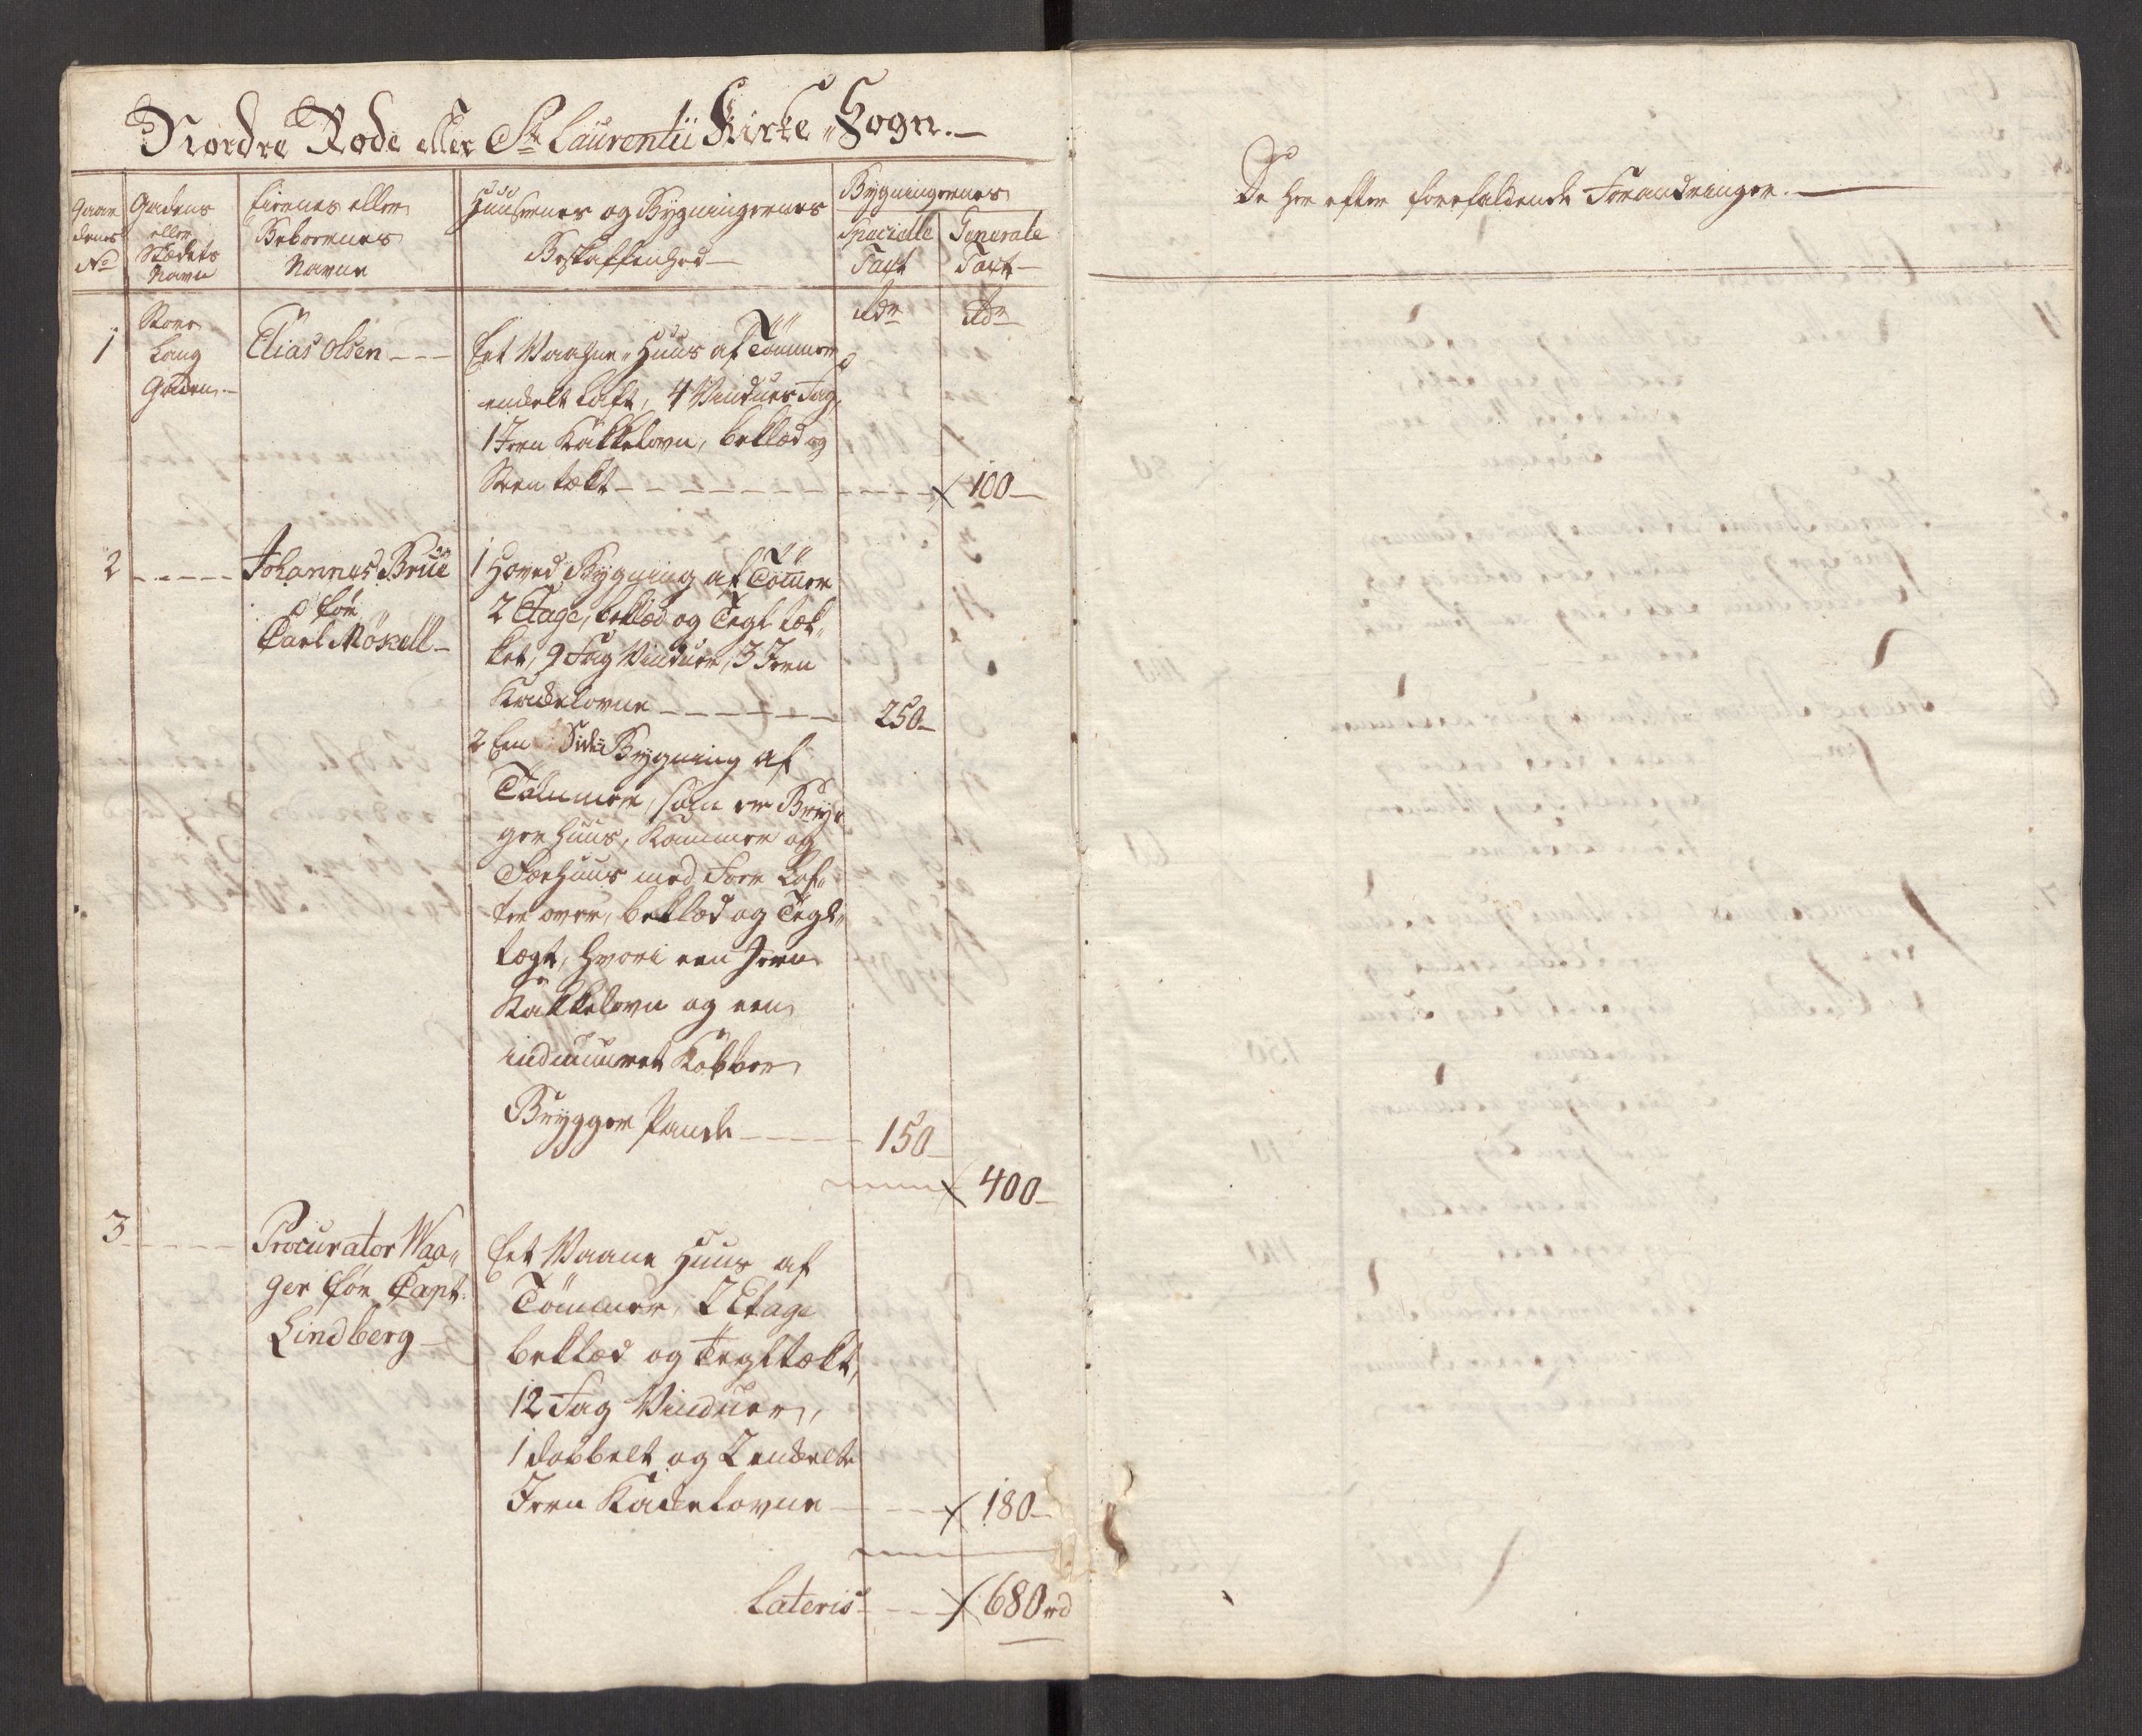 Nordre Rode eller St Laurentii Kirke-Sogn.
Gaar
denes
No
Gadens
eller
Stædets
Navn
Eierens eller
Beboernes
Navne
Huusenes og Bygningernes
Beskaffenhed
Bygningernes
Specielle
Taxt
Generale
Taxt
Rdr
Rdr
1
Store
Lang
Gaden
Elias Olsen
Eet Vaahne-Huus af Tømmer
endelt Loft, 4 Vinduer Fag,
1 Jern Kakkelovn, beklæd og
Steen tækt
100
2
Johannes Brue
før
Carl Mökell
1 Hoved Bygning af Tömmer
2 Etage, beklæd og Tegl tæk
ket, 9 Fag Vinduer, 3 Jern
Kackelovne
250
2 Een Side Bygning af
Tømmer, som er Bryg
ger Huus, Kammer og
Fæehuus med Foer Lof
ter over, beklæd og Tegl
tægt, hvori een Jern
Kakkelovn og een
indmuuret Kobber
Brygger Pande
150
400
3
Procurator Waa
ger för Capt.
Lindberg
Eet Vaane Huus af
Tömmer, 2 Etage
beklæd og Tegltækt,
12 Fag Vinduer,
1 dobbelt og 2 enkelte
Jern Kackelovne
180
Lateris
680 rd
De her efter forefaldende Forandringer.